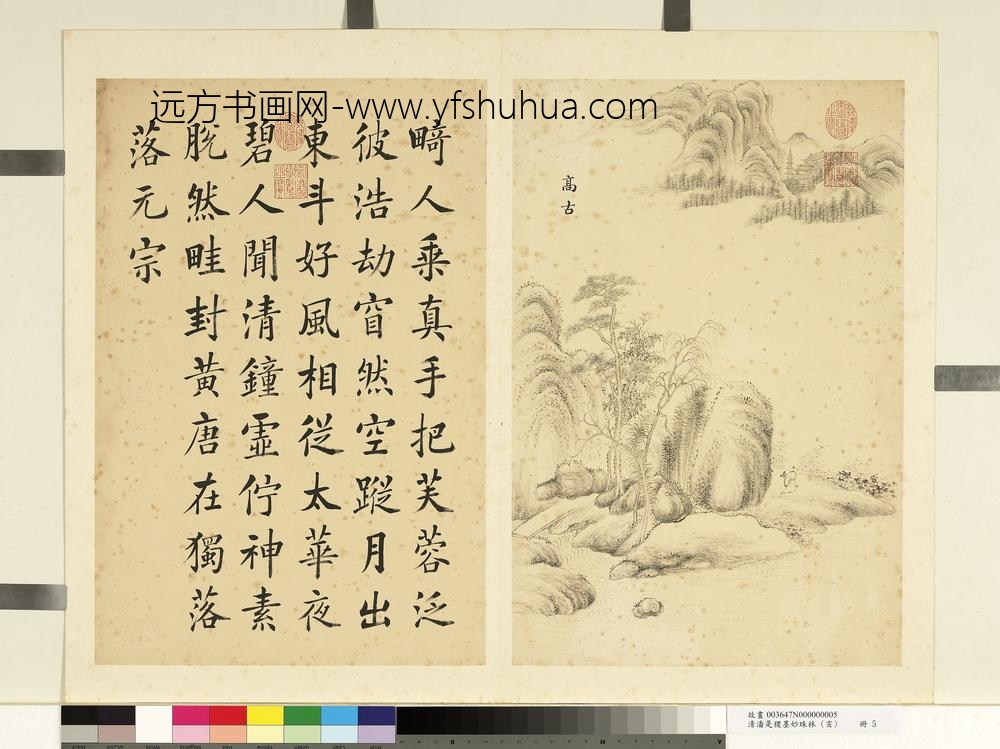 远方书画网-www.yfshuhua.com
高古
畸人乘真手把芙蓉泛
彼浩劫窅然空蹤月出
東斗好風相從太華夜
碧人聞清鐘虛佇神素
脫然畦封黃唐在獨落
落元宗
故畫 003647N000000005
清潘是稷墨妙珠林（亥） 冊 5